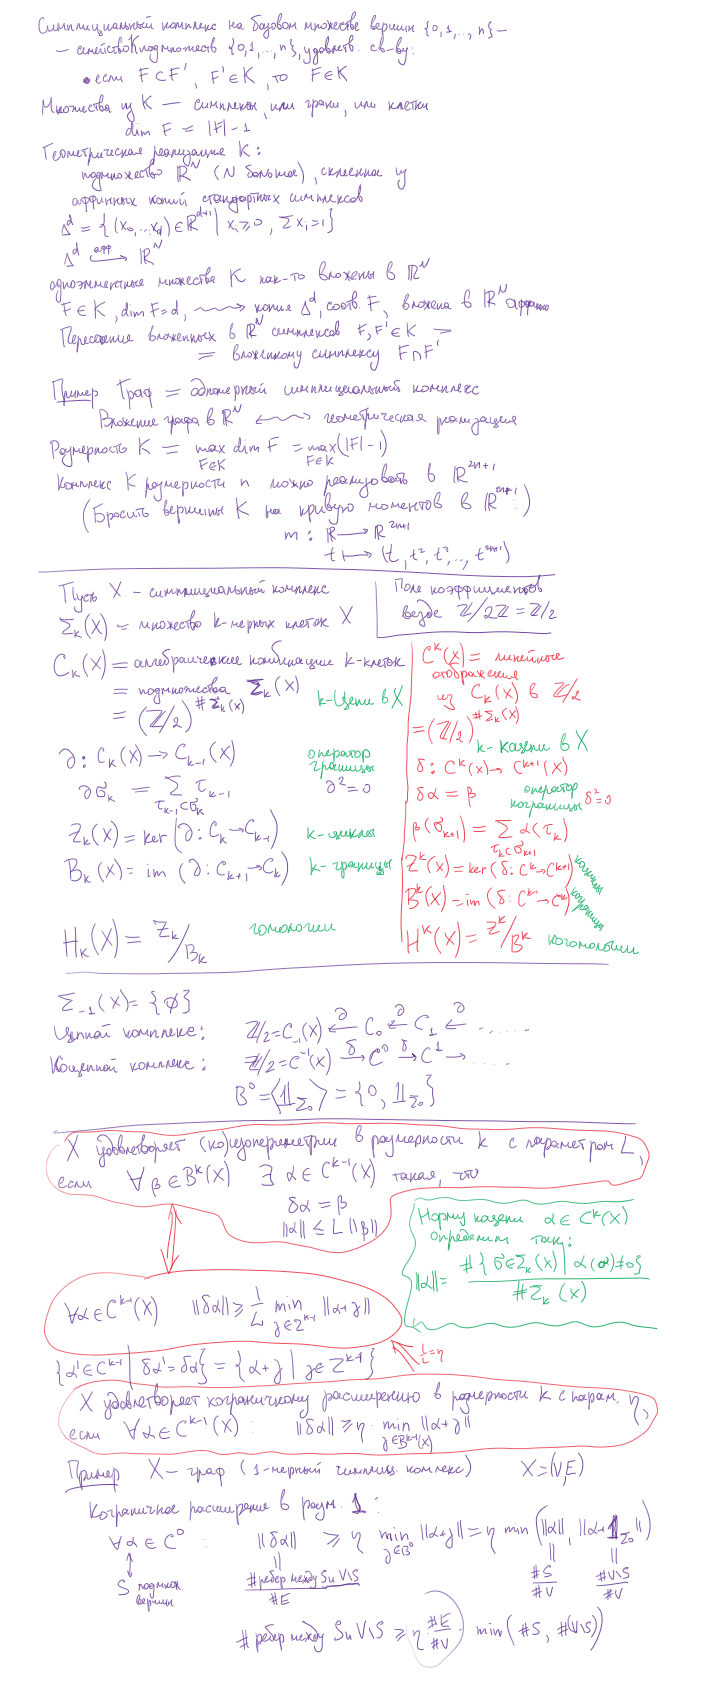 Симплициальный комплекс на базовом множестве вершин {0,1,..,n} –
– семейство K подмножеств {0,1,..,n}, удовлетв. св-ву:
• если F ⊂ F', F' ∈ K, то F ∈ K
Множества из K — симплексы, или грани, или клетки
dim F = |F| - 1
Геометрическая реализация K:
подмножество ℝ^N (N большое), склеенное из
аффинных копий стандартных симплексов
Δ^d = {(x_0,...x_d) ∈ ℝ^{d+1} | x_i ≥ 0, Σ x_i = 1}
Δ^d ↪^{афф} ℝ^N
одноэлементные множества K как-то вложены в ℝ^N
F ∈ K, dim F = d, ⇝ копия Δ^d, соотв. F, вложена в ℝ^N аффинно
Пересечение вложенных в ℝ^N симплексов F, F' ∈ K =
= вложенному симплексу F ∩ F'
Пример Граф = одномерный симплициальный комплекс
Вложение графа в ℝ^N ↔ геометрическая реализация
Размерность K = max_{F∈K} dim F = max_{F∈K} (|F| - 1)
Комплекс K размерности n можно реализовать в ℝ^{2n+1}
(Бросить вершины K на кривую моментов в ℝ^{2n+1}:)
m: ℝ → ℝ^{2n+1}
t ↦ (t, t², t³, .., t^{2n+1})
Пусть X – симплициальный комплекс
Поле коэффициентов
везде ℤ/2ℤ = ℤ/2
Σ_k(X) = множество k-мерных клеток X
C_k(X) = алгебраические комбинации k-клеток
= подмножества Σ_k(X)
= (ℤ/2)^{#Σ_k(X)}
k-цепи в X
∂: C_k(X) → C_{k-1}(X)
оператор границы
∂σ_k = Σ_{τ_{k-1}⊂σ_k} τ_{k-1}
∂² = 0
Z_k(X) = ker(∂: C_k → C_{k-1})
k-циклы
B_k(X) = im(∂: C_{k+1} → C_k)
k-границы
H_k(X) = Z_k/B_k
гомологии
C^k(X) = линейные
отображения
из C_k(X) в ℤ/2
= (ℤ/2)^{#Σ_k(X)}
k-коцепи в X
δ: C^k(X) → C^{k+1}(X)
δα = β
оператор кограницы δ² = 0
β(σ_{k+1}) = Σ_{τ_k⊂σ_{k+1}} α(τ_k)
Z^k(X) = ker(δ: C^k → C^{k+1})
коциклы
B^k(X) = im(δ: C^{k-1} → C^k)
кограницы
H^k(X) = Z^k/B^k
когомологии
Σ_{-1}(X) = {∅}
Цепной комплекс: ℤ/2 = C_{-1}(X) ←^∂ C_0 ←^∂ C_1 ←^∂ ......
Коцепной комплекс: ℤ/2 = C^{-1}(X) →^δ C^0 →^δ C^1 → ....
B^0 = ⟨𝟙_{Σ_0}⟩ = {0, 𝟙_{Σ_0}}
X удовлетворяет (ко)изопериметрии в размерности k с параметром L,
если ∀β ∈ B^k(X) ∃ α ∈ C^{k-1}(X) такая, что
δα = β
||α|| ≤ L ||β||
Норму коцепи α ∈ C^k(X)
определим так:
||α|| = #{σ ∈ Σ_k(X) | α(σ) ≠ 0} / #Σ_k(X)
∀α ∈ C^{k-1}(X) ||δα|| ≥ 1/L min_{γ∈Z^{k-1}} ||α+γ||
{α' ∈ C^{k-1} | δα' = δα} = {α+γ | γ ∈ Z^{k-1}}
1/L = η
X удовлетворяет кограничному расширению в размерности k с парам. η,
если ∀α ∈ C^{k-1}(X): ||δα|| ≥ η · min_{γ∈B^{k-1}(X)} ||α+γ||
Пример X – граф (1-мерный симплиц. комплекс) X = (V,E)
Кограничное расширение в разм. 1:
∀α ∈ C^0: ||δα|| ≥ η min_{γ∈B^0} ||α+γ|| = η min(||α||, ||α+𝟙_{Σ_0}||)
S подмнож. вершин
#ребер между S и V\S / #E
#S / #V
#V\S / #V
# ребер между S и V\S ≥ η #E/#V · min(#S, #(V\S))